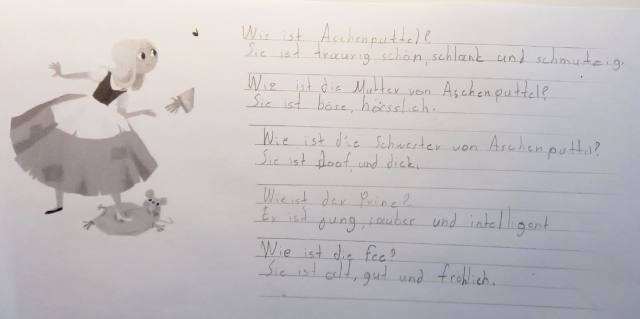 Wie ist Aschenputtel?
Sie ist traurig schön, schlank und schmutzig.
Wie ist die Mutter von Aschenputtel?
Sie ist böse, hässlich.
Wie ist die Schwester von Aschenputtel?
Sie ist doof, und dick.
Wie ist der Prinz?
Er ist jung, sauber und intelligent
Wie ist die Fee?
Sie ist alt, gut und fröhlich.